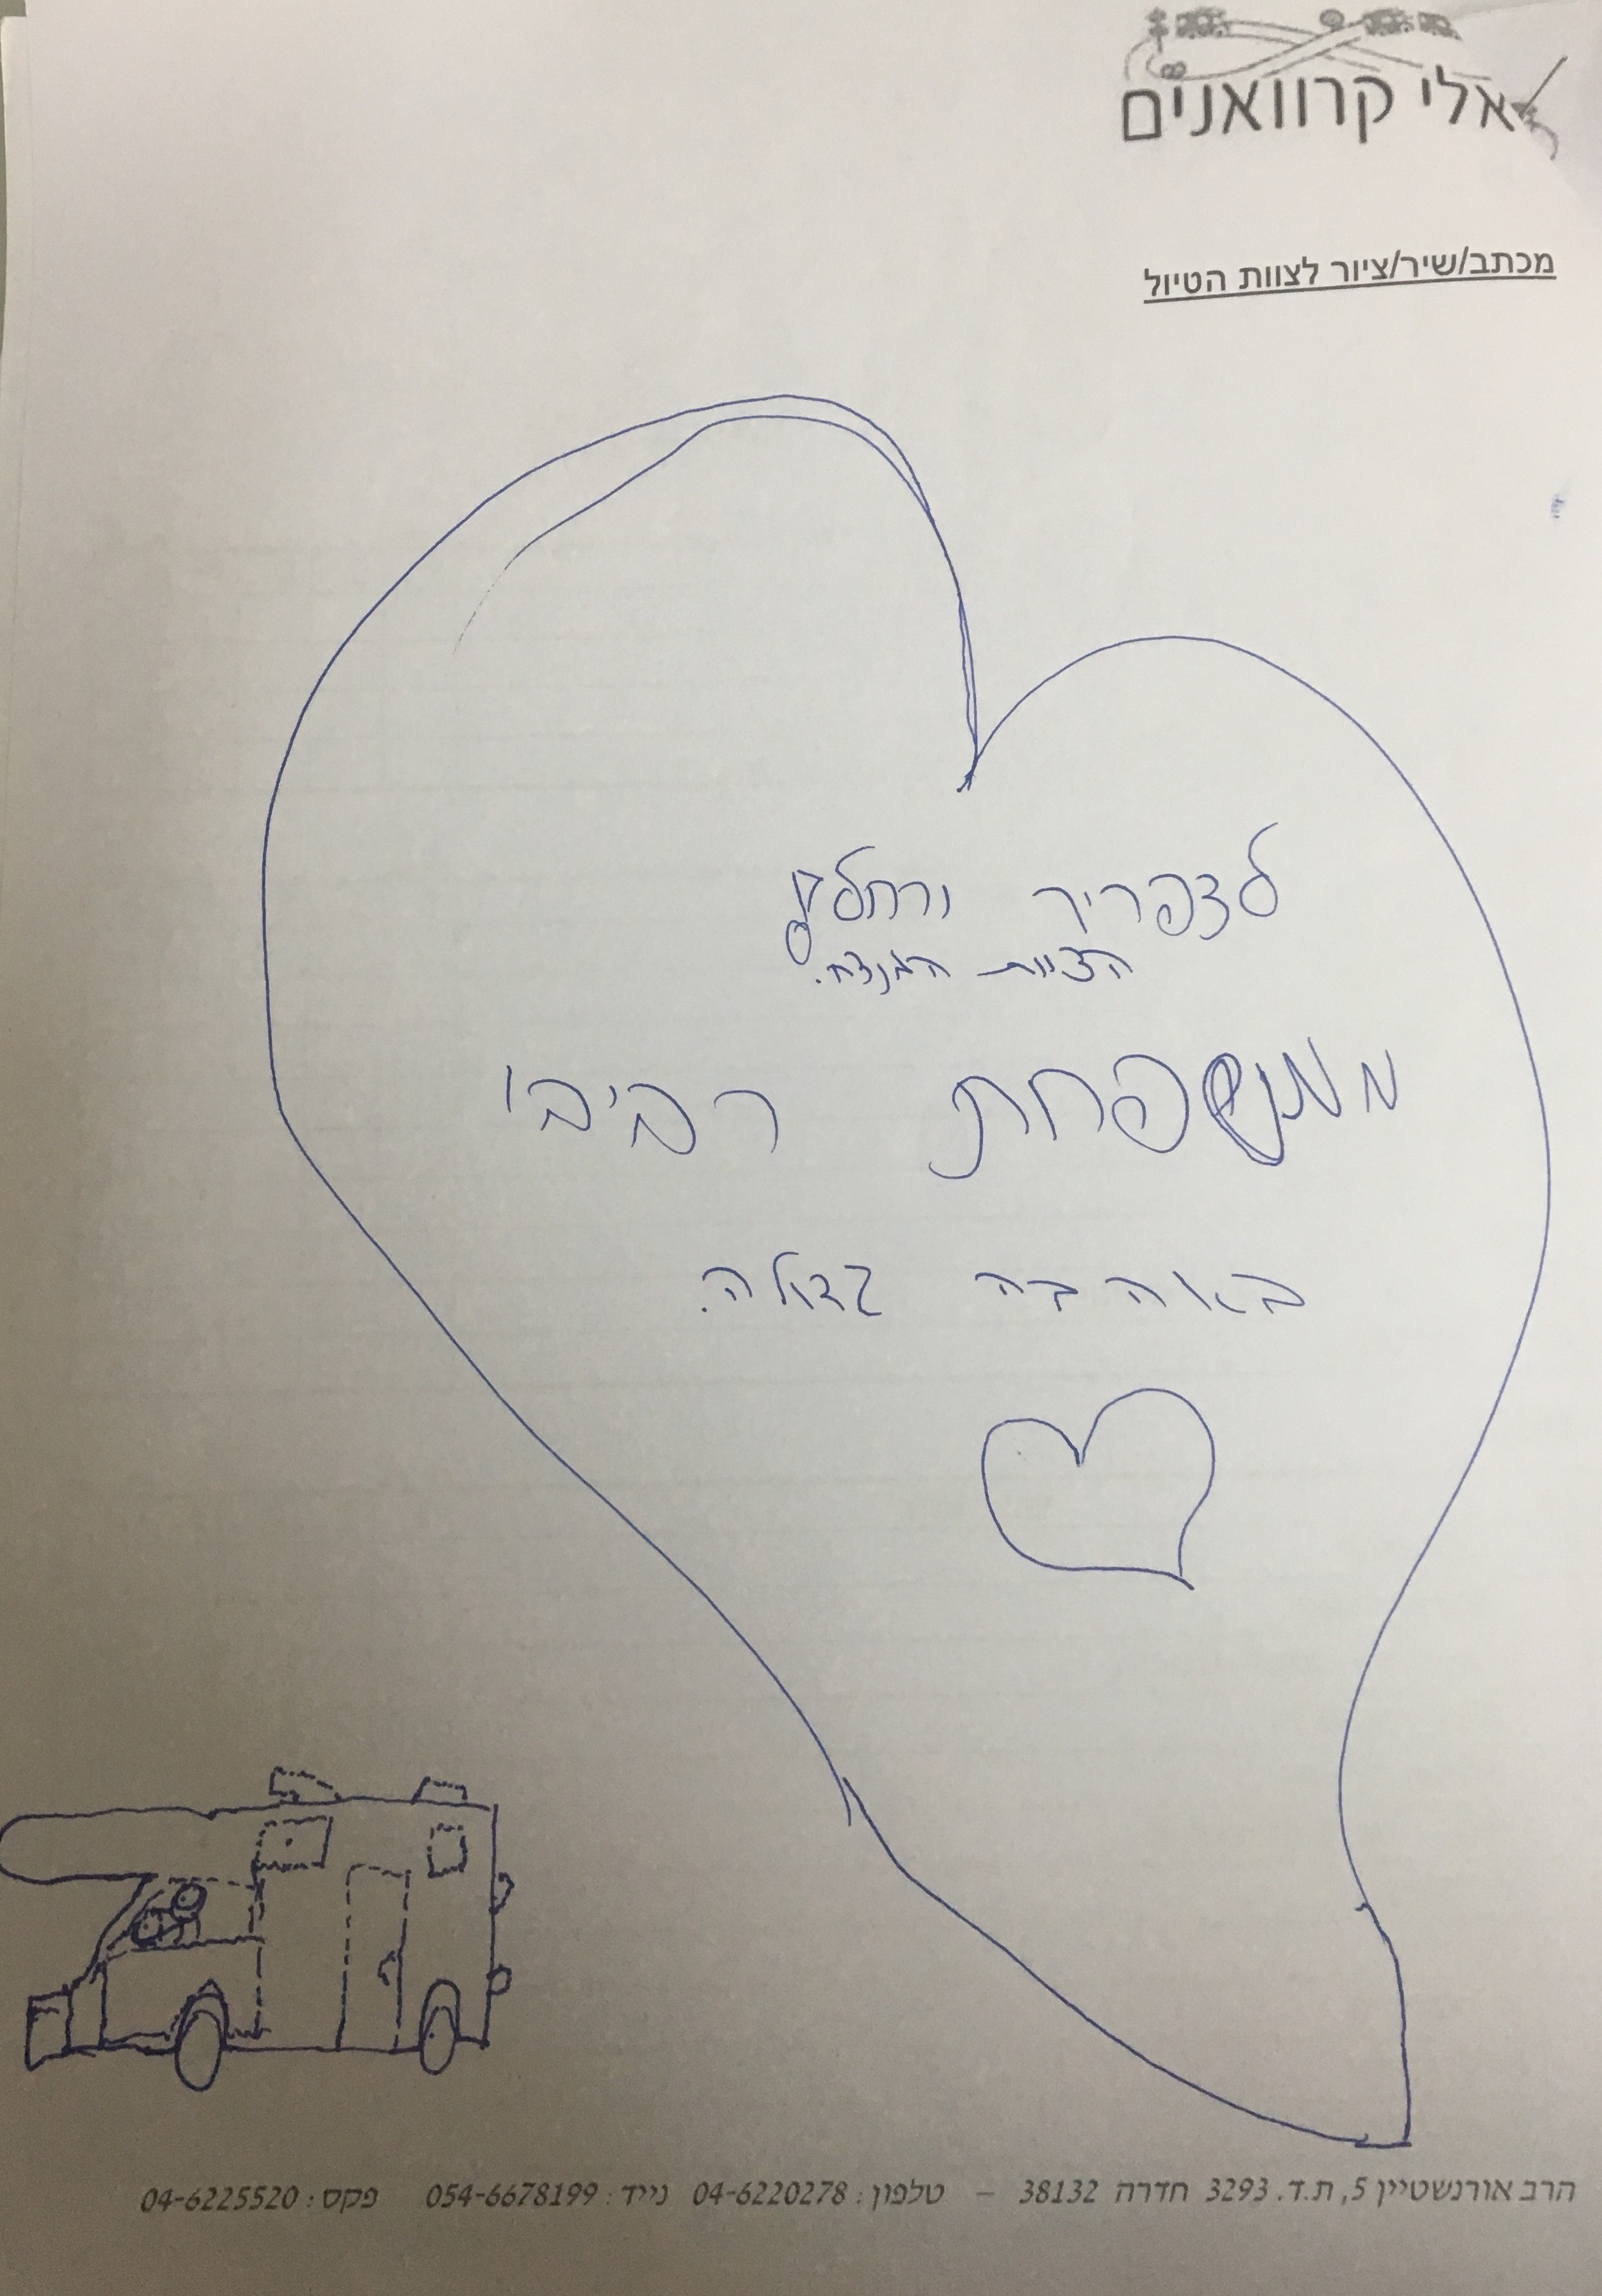 אלי קרוואנים
מכתב/שיר/ציור לצוות הטיול
לצפריר ורחלי
הצוות המנצח.
ממשפחת רביבי
באהבה גדולה.
הרב אורנשטיין 5, ת.ד. 3293 חדרה 38132 – טלפון: 04-6220278 נייד: 054-6678199 פקס: 04-6225520